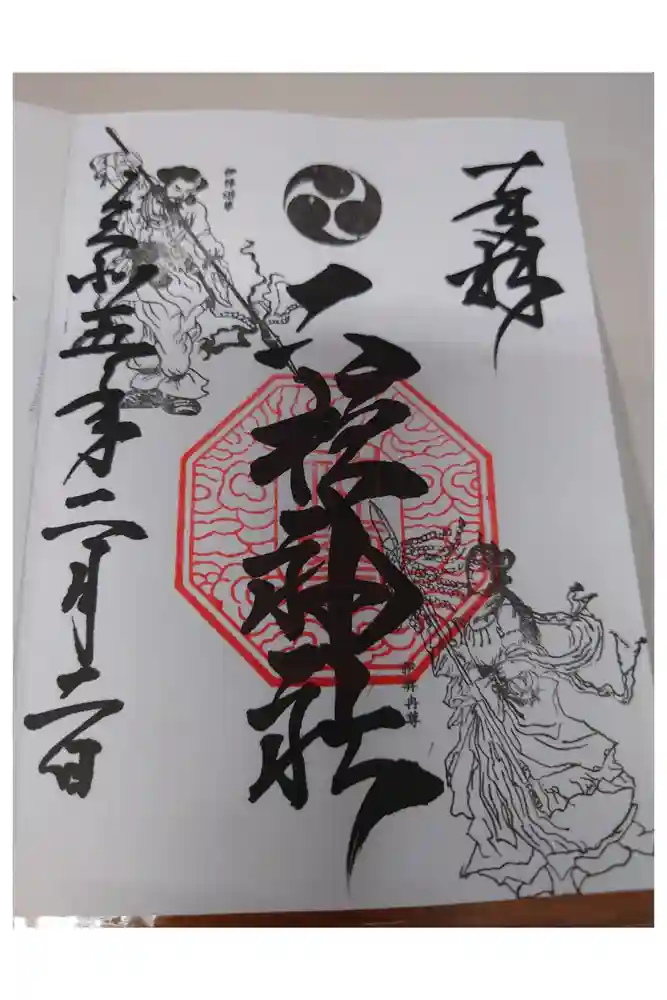 奉拝
二柱神社
伊弉諾尊
伊弉冉尊
令和五年二月二日